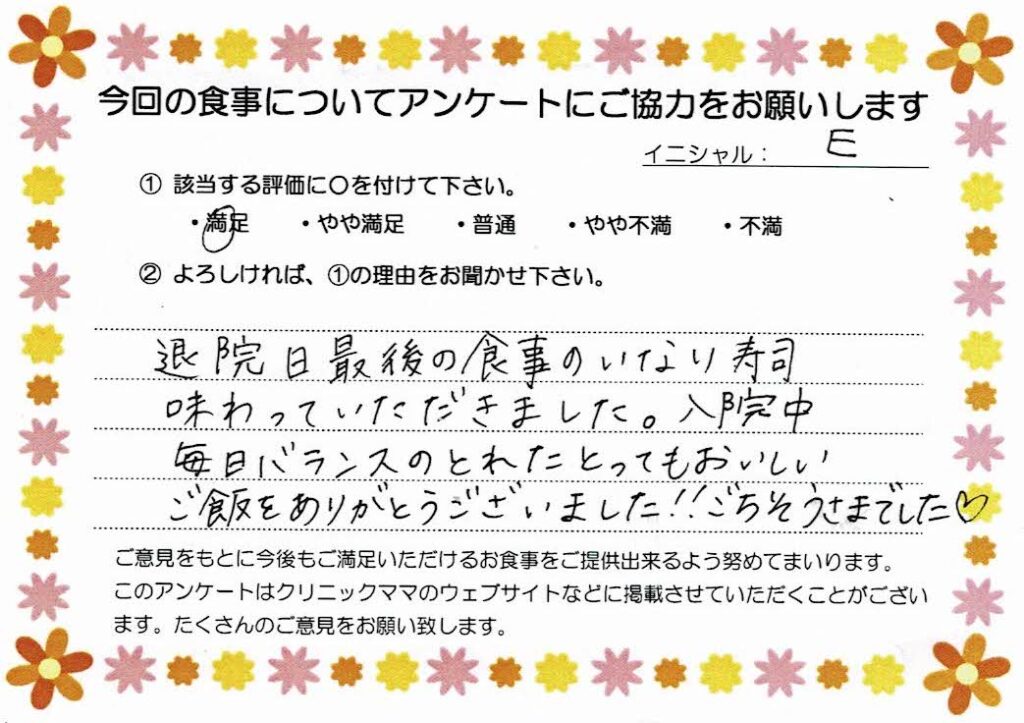 今回の食事についてアンケートにご協力をお願いします
イニシャル： E
① 該当する評価に〇を付けて下さい。
・満足 ・やや満足 ・普通 ・やや不満 ・不満
② よろしければ、①の理由をお聞かせ下さい。
退院日最後の食事のいなり寿司
味わっていただきました。入院中
毎日バランスのとれたとってもおいしい
ご飯をありがとうございました!!ごちそうさまでした♡
ご意見をもとに今後もご満足いただけるお食事をご提供出来るよう努めてまいります。
このアンケートはクリニックママのウェブサイトなどに掲載させていただくことがござい
ます。たくさんのご意見をお願い致します。